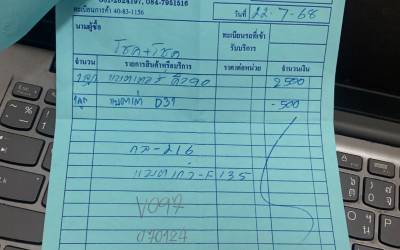 081-2624197, 084-7951516
ทะเบียนการค้า 40-83-1156
วันที่ 22-7-68
นามผู้ซื้อ
โชค+เชค
ทะเบียนรถที่เข้ารับบริการ
จำนวน รายการสินค้าหรือบริการ ราคาต่อหน่วย จำนวนเงิน
1ลูก แบตเตอรี่ 2500
1ลูก แบตเก่า D31 -500
กล-216
แบตเก่า-F135
V097
070124